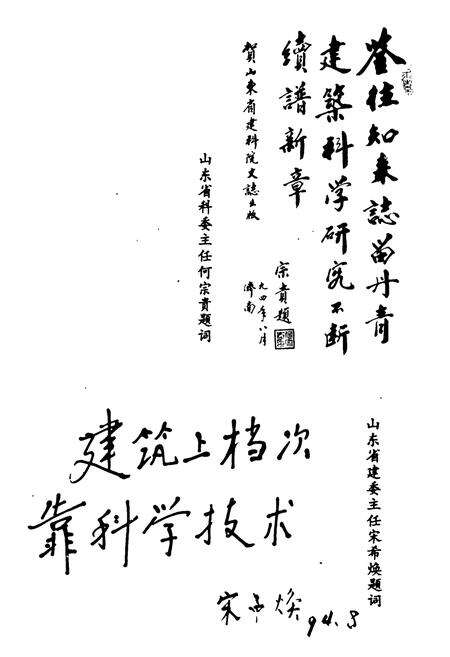 鉴往知来誌留丹青
建築科学研究不断
續譜新章
賀山東省建科院文誌出版
宗贵題
九四年八月
濟南
山东省科委主任何宗贵题词
建筑上档次
靠科学技术
宋希焕 94.8
山东省建委主任宋希焕题词